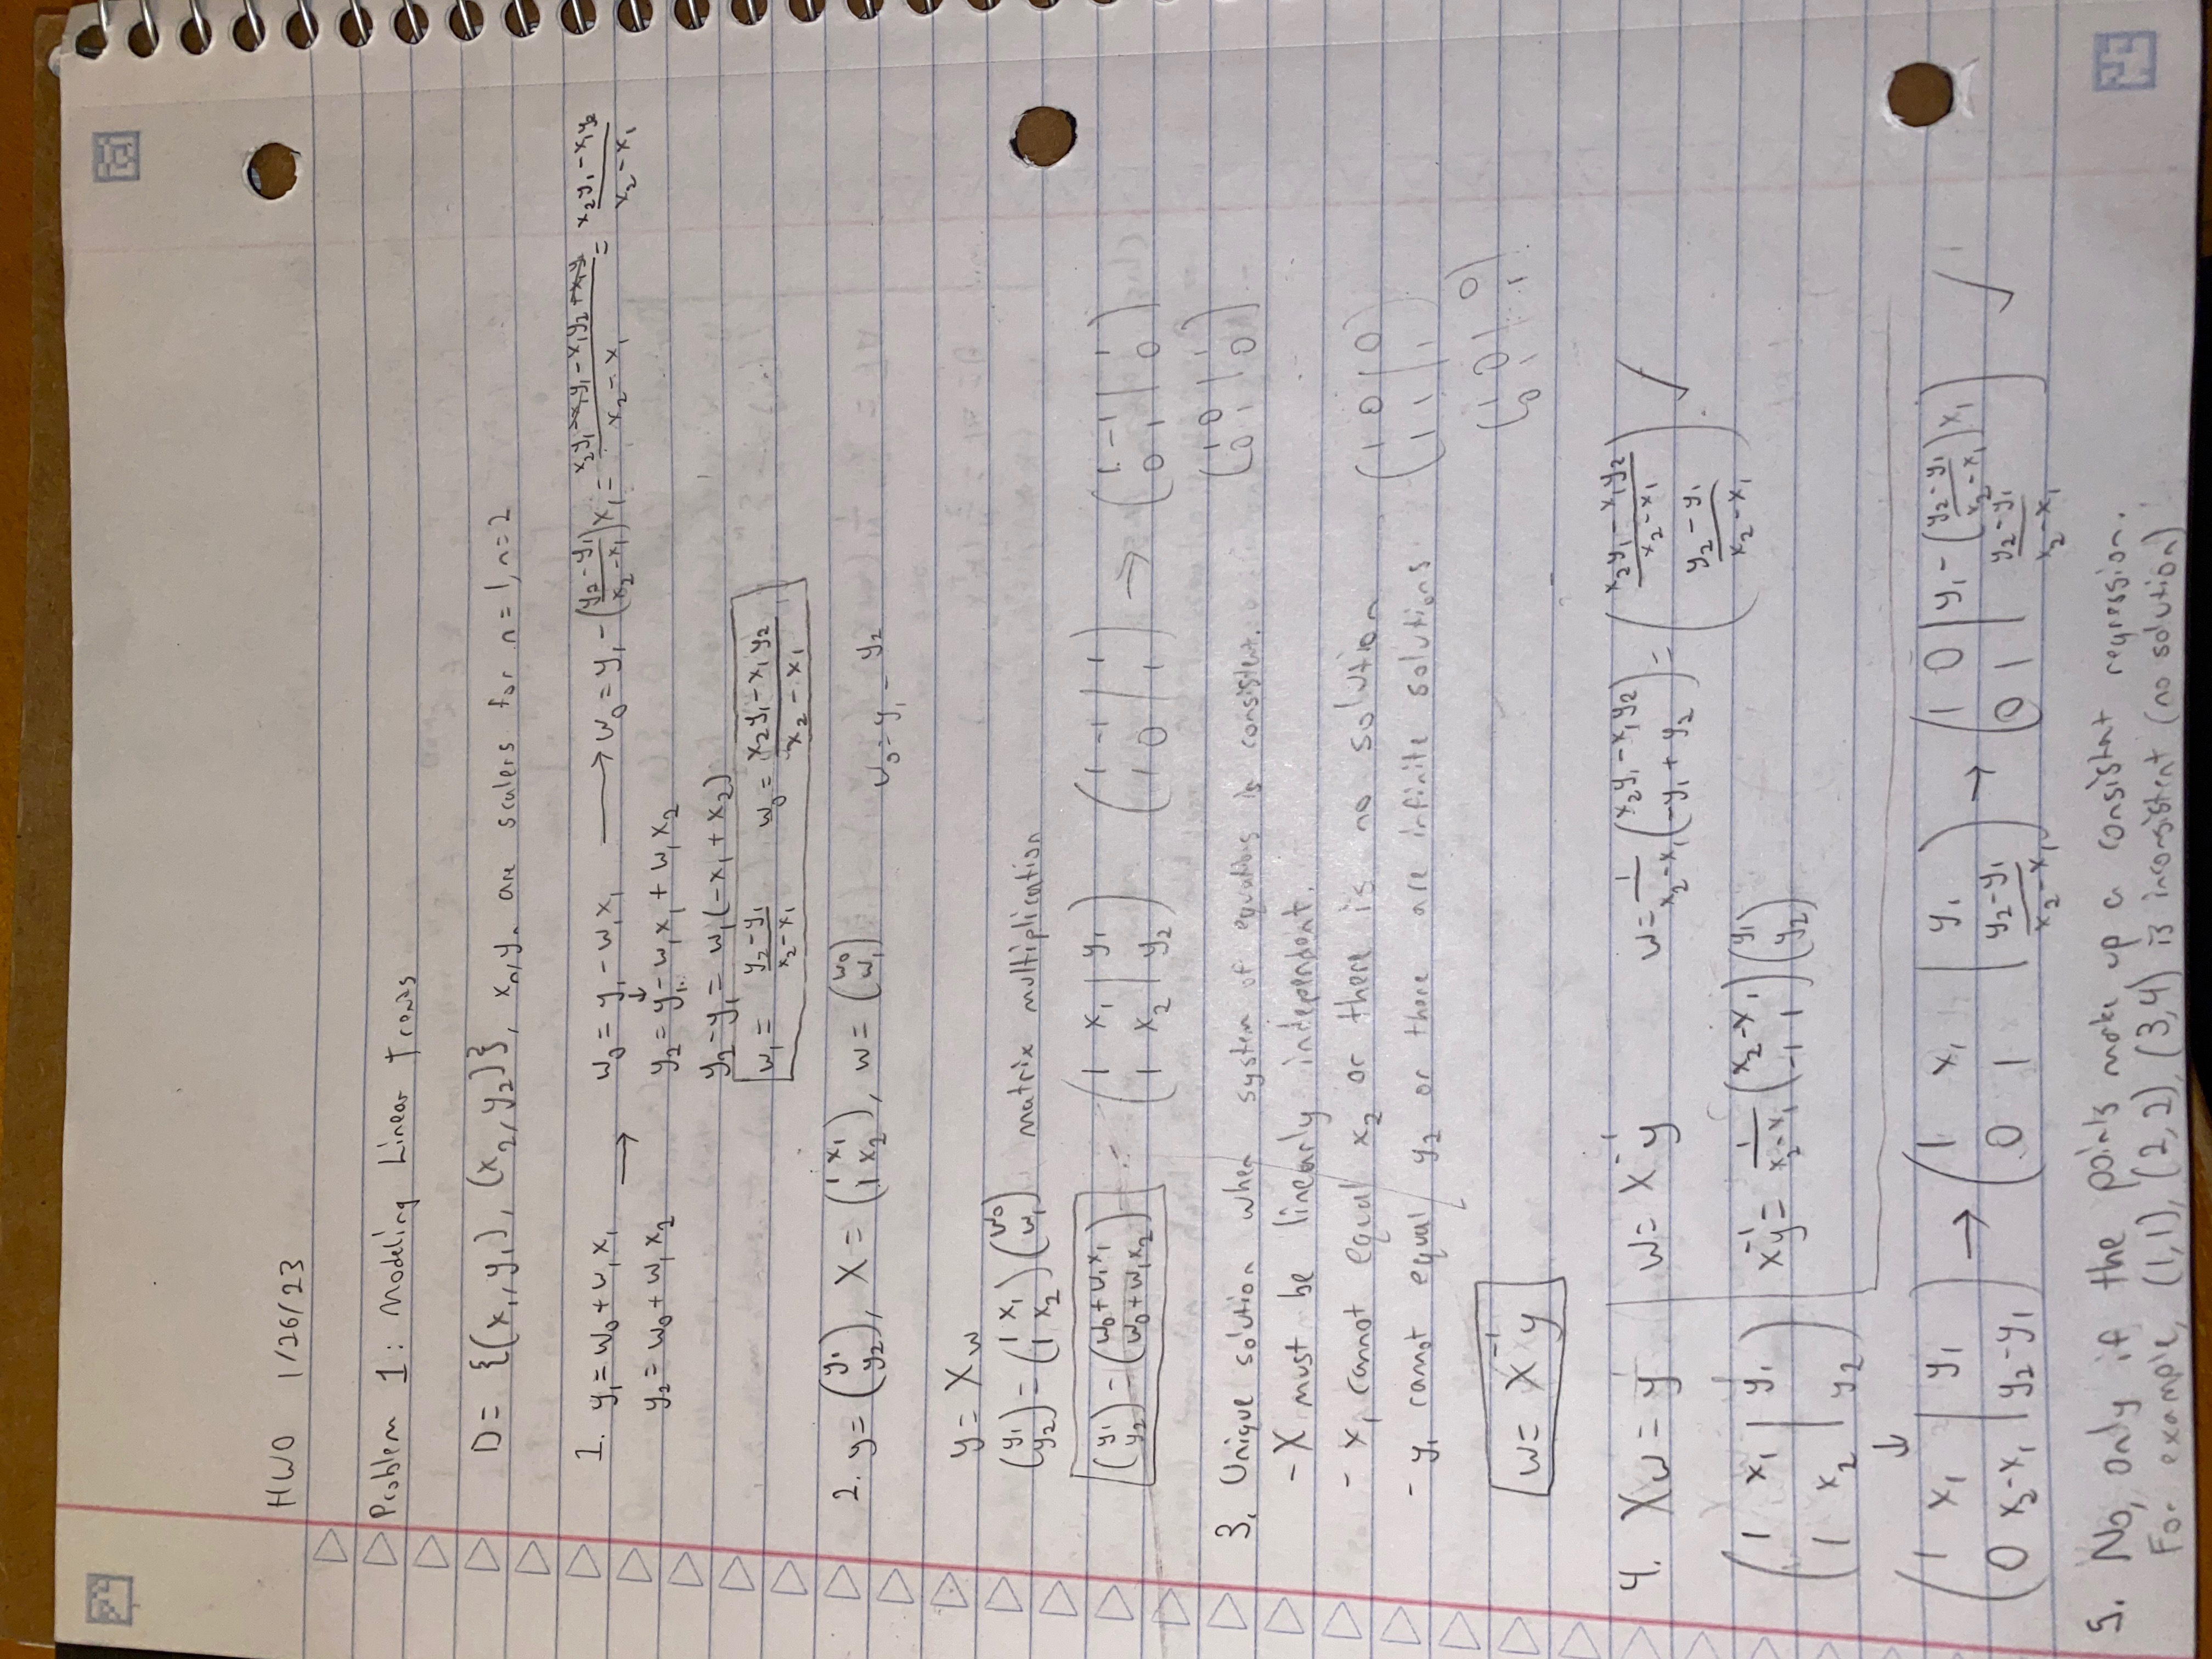 HW0 1/26/23
Problem 1: Modeling Linear Trends
D = {(x₁, y₁), (x₂, y₂)}, xₙ, yₙ are scalers for n=1, n=2
1. y₁ = w₀ + w₁x₁ → w₀ = y₁ - w₁x₁ → w₀ = y₁ - ((y₂-y₁)/(x₂-x₁))x₁ = (x₂y₁ - x₁y₁ - x₁y₂ + x₁y₁)/(x₂-x₁) = (x₂y₁ - x₁y₂)/(x₂-x₁)
y₂ = w₀ + w₁x₂ ↓ y₂ = y₁ - w₁x₁ + w₁x₂
y₂ - y₁ = w₁(-x₁ + x₂)
w₁ = (y₂-y₁)/(x₂-x₁) w₀ = (x₂y₁ - x₁y₂)/(x₂ - x₁)
2. y = (y₁; y₂), X = (1 x₁; 1 x₂), w = (w₀; w₁) w₀ = y₁ - y₂
y = Xw
(y₁; y₂) = (1 x₁; 1 x₂)(w₀; w₁) matrix multiplication
(y₁; y₂) = (w₀ + w₁x₁; w₀ + w₁x₂) = (1 x₁ | y₁; 1 x₂ | y₂) (1 -1 | 1; 1 0 | 1) → (1 -1 | 1; 0 1 | 0)
(1 0 | 1; 0 1 | 0)
3. Unique solution when system of equations is consistent.
- X must be linearly independent.
- x₁ cannot equal x₂ or there is no solution
- y₁ cannot equal y₂ or there are infinite solutions
(1 0 | 0; 1 1 | 1)
(1 0 | 0; 0 1 | 1)
w = X⁻¹y
4. Xw = y | w = X⁻¹y w = 1/(x₂-x₁) (x₂y₁ - x₁y₂; -y₁ + y₂) = ((x₂y₁ - x₁y₂)/(x₂-x₁); (y₂-y₁)/(x₂-x₁)) ✓
(1 x₁ | y₁; 1 x₂ | y₂) X⁻¹y = 1/(x₂-x₁) (x₂ -x₁; -1 1)(y₁; y₂)
↓
(1 x₁ | y₁; 0 x₂-x₁ | y₂-y₁) → (1 x₁ | y₁; 0 1 | (y₂-y₁)/(x₂-x₁)) → (1 0 | y₁ - ((y₂-y₁)/(x₂-x₁))x₁; 0 1 | (y₂-y₁)/(x₂-x₁)) ✓
5. No, only if the points make up a consistent regression.
For example, (1,1), (2,2), (3,4) is inconsistent (no solution)